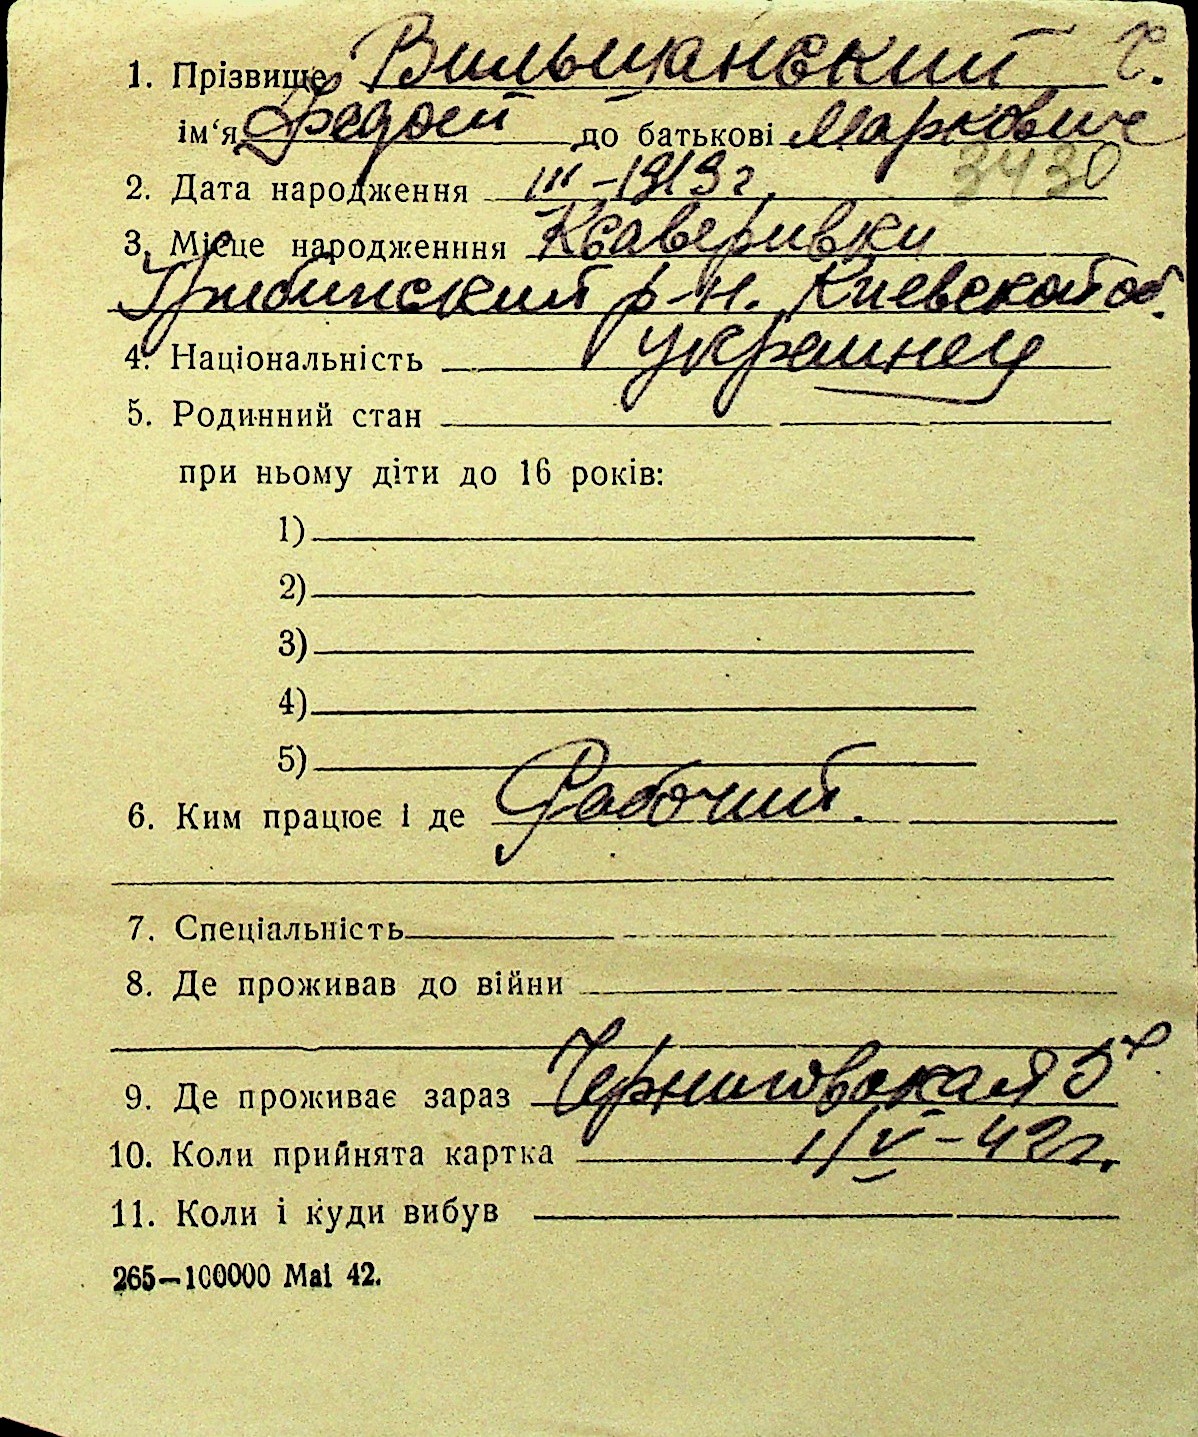 1. Прізвище Вильшанский С.
ім‘я Федосий до батькові Маркович
2. Дата народження III-1919 г. 3430
3. Місце народженння Ксаверивки
р-н. Киевской об.
4. Національність украинец
5. Родинний стан
при ньому діти до 16 років:
1)
2)
3)
4)
5)
6. Ким працює і де Рабочий.
7. Спеціальність
8. Де проживав до війни
9. Де проживає зараз Черниговская 5
10. Коли прийнята картка 1/V-42 г.
11. Коли і куди вибув
265—100000 Mai 42.